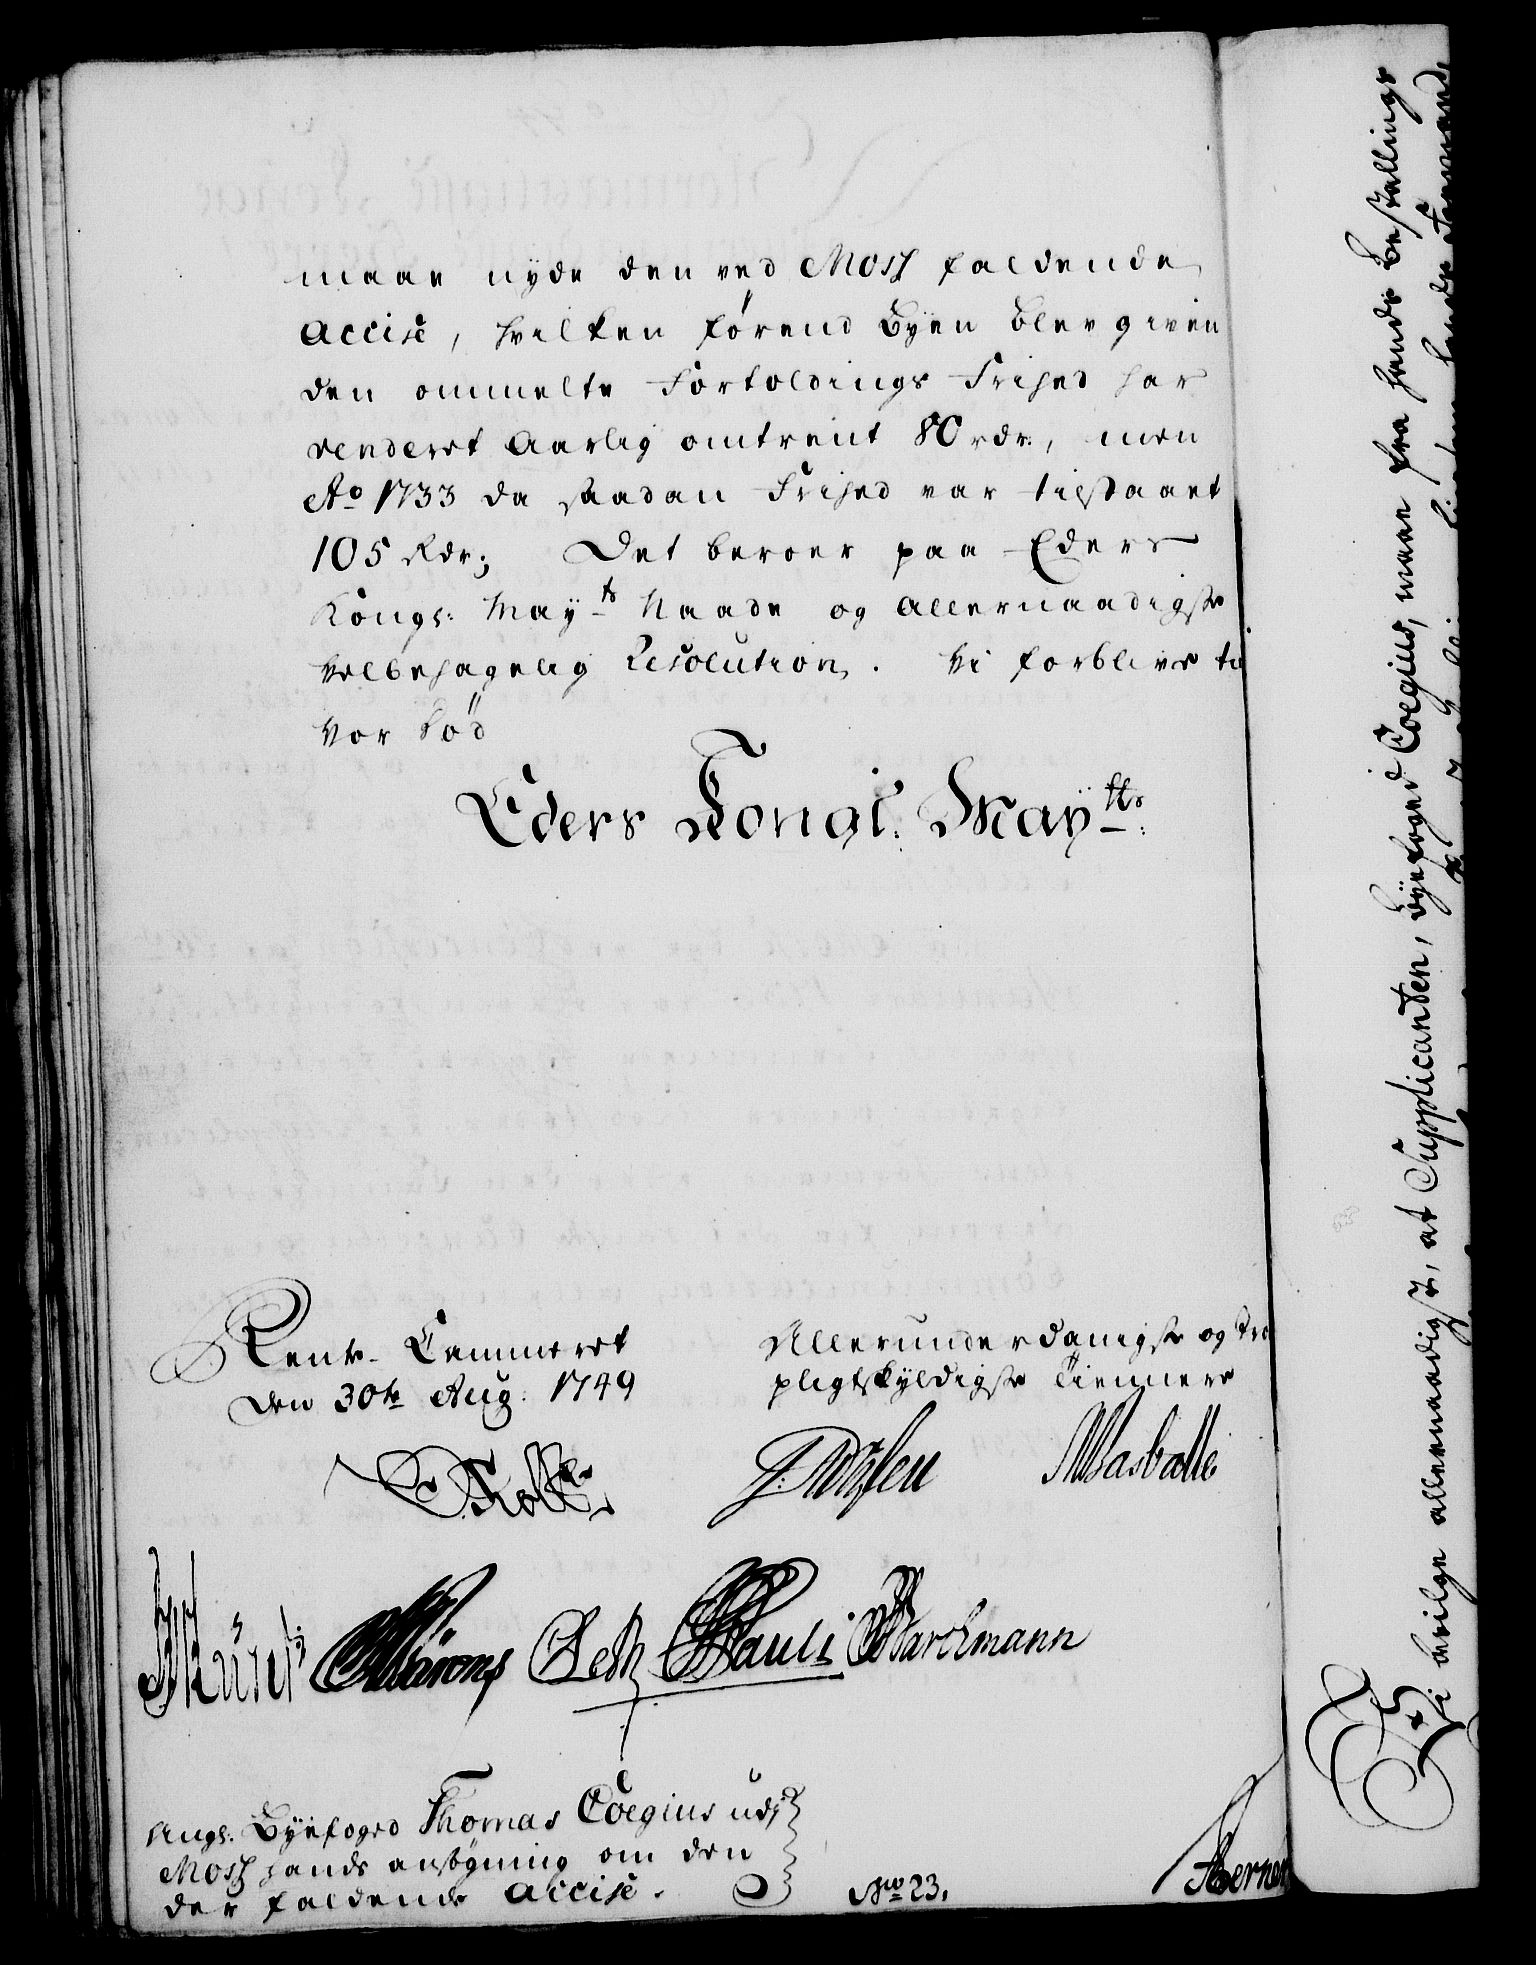 maae nyde den ved Moss faldende
Accise, hvilken førend Byen blev given
den ommelte Fortoldings Frihed har
renderet Aarlig omtrent 80 rdr., men
Ao 1733 da saadan Frihed var tilstaaet
105 Rdr; Det beroer paa Eders
Kongl: May.ts Naade og allernaadigste
velbehagelig Resolution. Vi forblive til
vor Død
Eders Kongl. May.tts
Rente-Cammeret
den 30te Aug: 1749
Allerunderdanigste og
pligtskyldigste Tiennere
Pauli Marckmann
Angl: Byefoged Thomas Coegius udj
Moss hands ansøgning om den
der faldende Accise.
No 23.
Vi bevilge allernaadigst, at Supplicanten, Byefoged Coegius, maae fra hands Bestallings